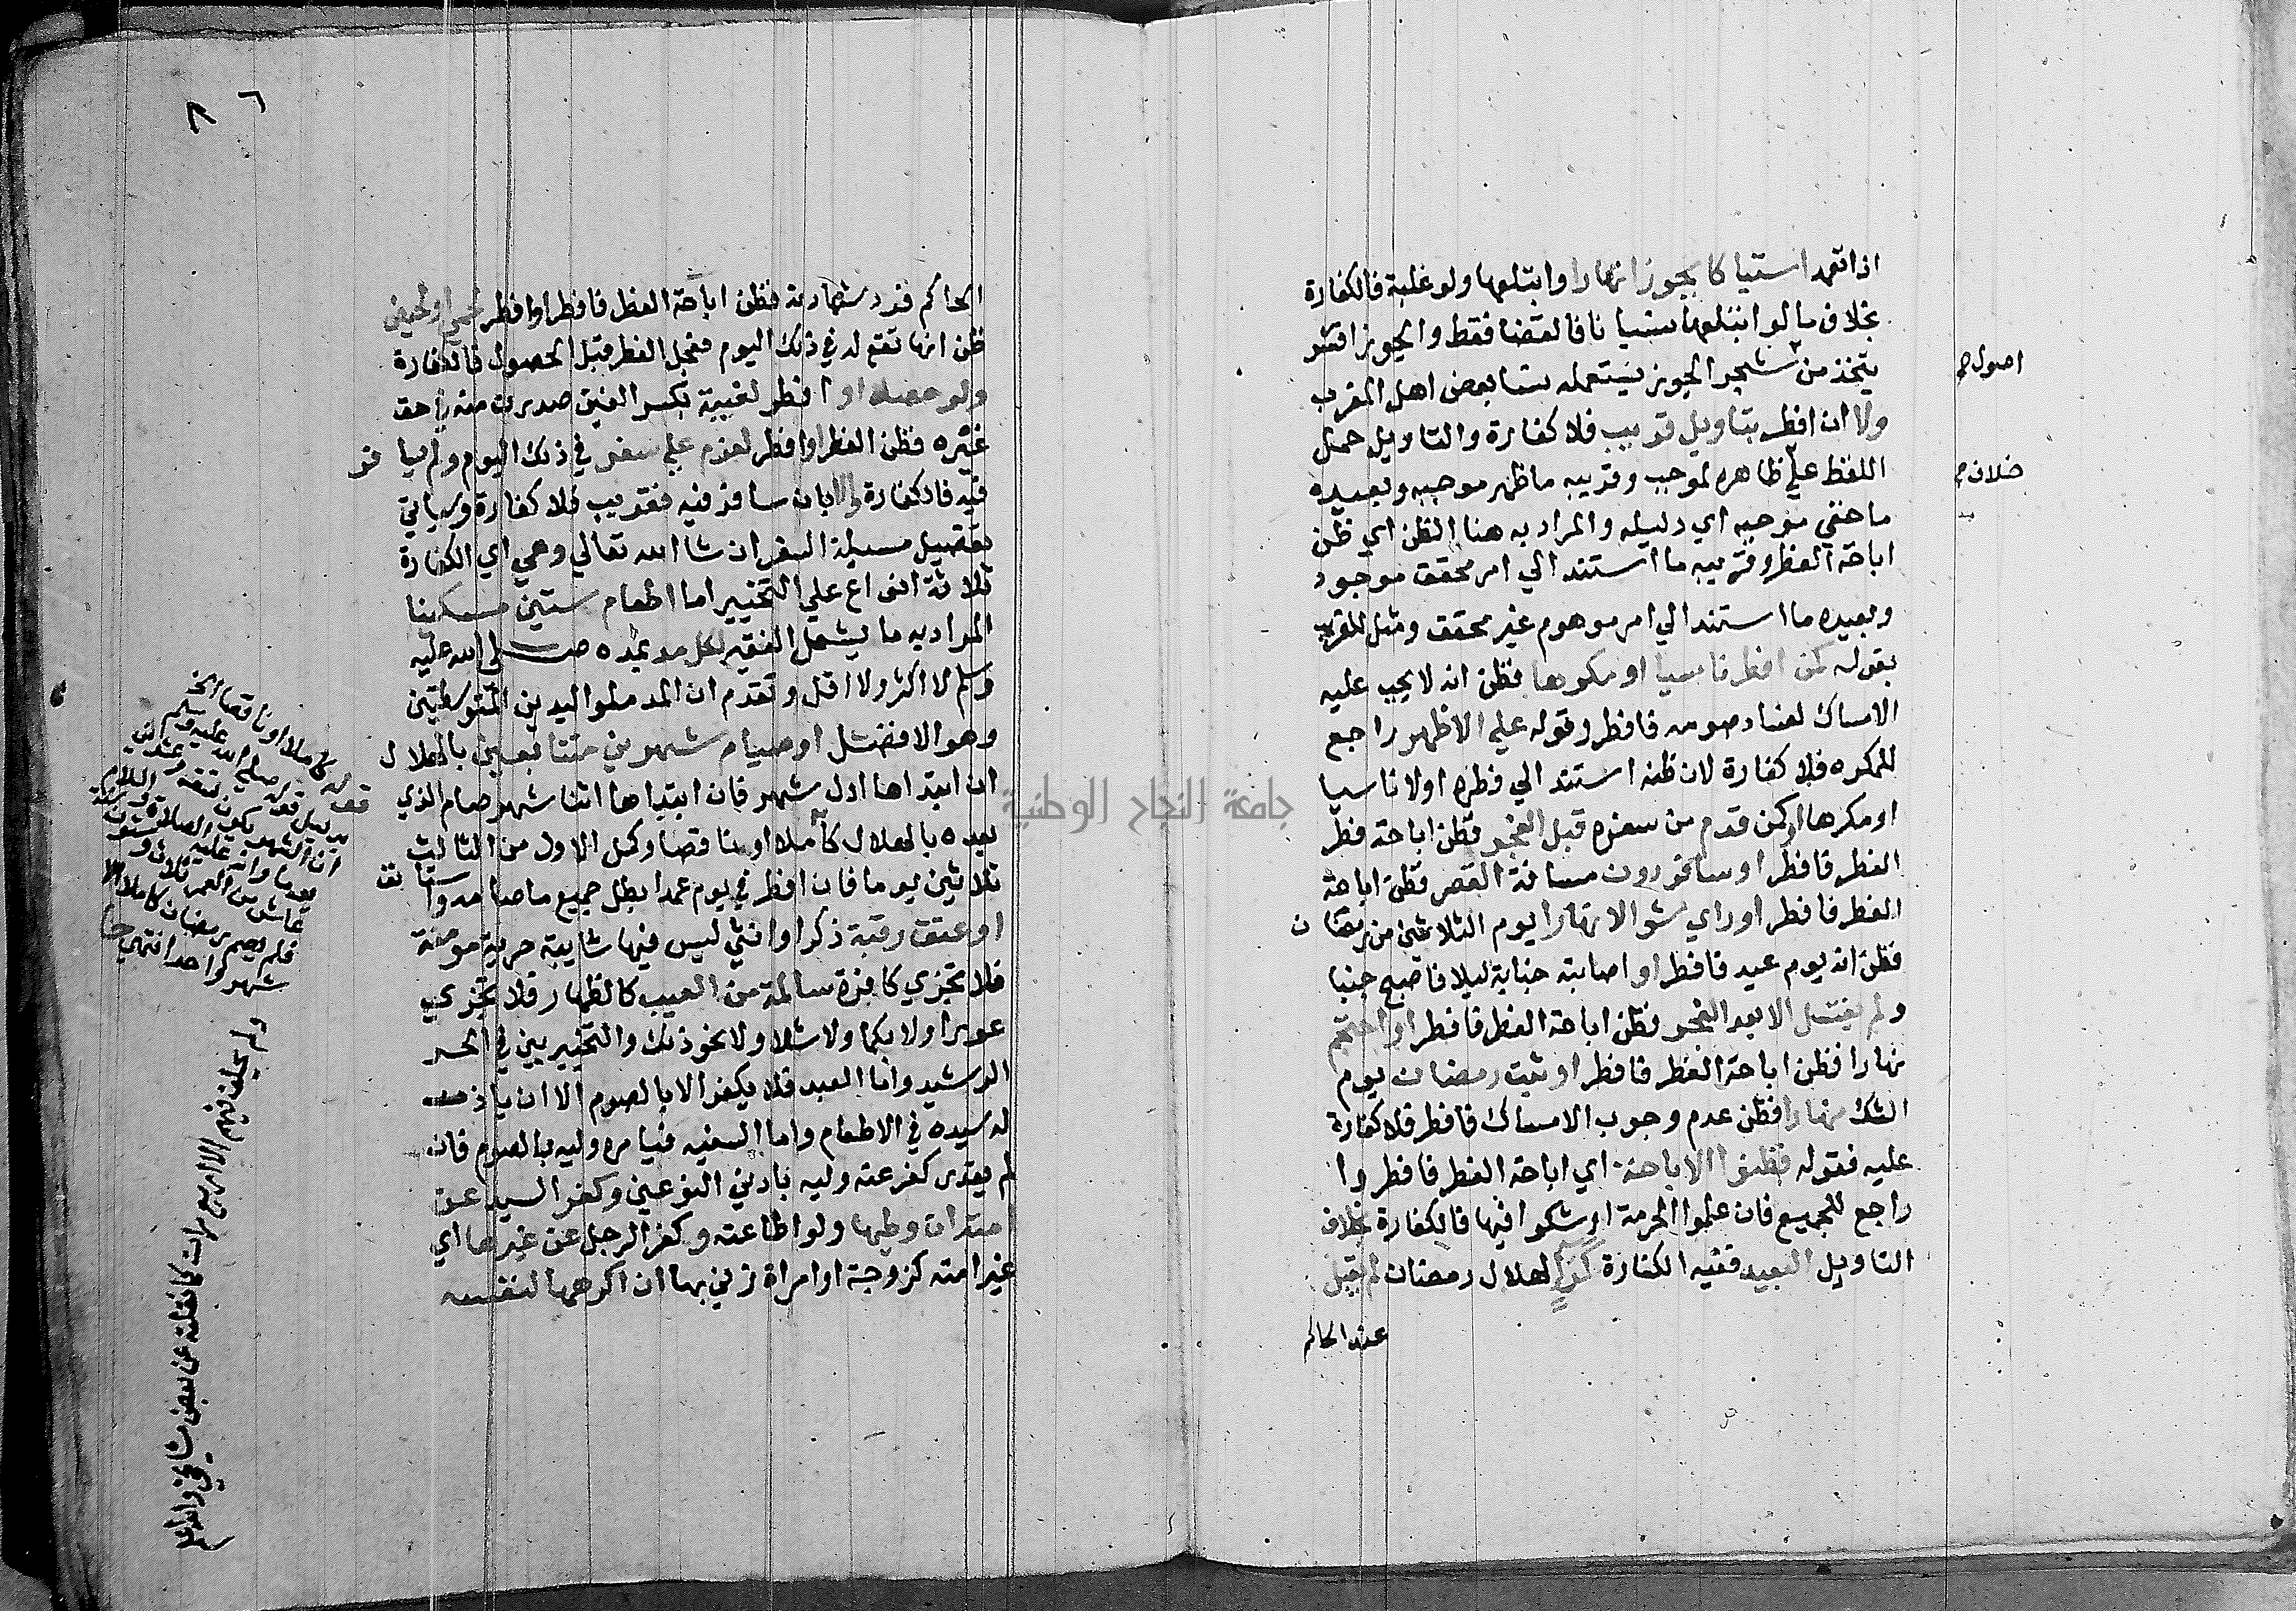 اذا تعمد استياكا بجوزا نهارا وابتلعها ولو غلبة فالكفارة
بخلاف ما لو ابتلعها نسيانا فالقضا فقط والجوز اقشر
يتخذ من شجر الجوز يستعمله نسا بعض اهل المغرب
اصول
ولا ان افطر بتاويل قريب فلا كفارة والتاويل حمل
اللفظ علي ظاهره لموجب وقريبه ما ظهر موجبه وبعيده
خلاف
ما خفي موجبه اي دليله والمراد به هنا الظن اي ظن
اباحة الفطر وقريبه ما استند الي امر محقق موجود
وبعيده ما استند الي امر موهوم غير محقق ومثل للقريب
بقوله كمن افطر ناسيا او مكرها فظن انه لا يجب عليه
الامساك لفساد صومه فافطر وقوله علي الاظهر راجع
للمكره فلا كفارة لان ظنه استند الي فطره اولا ناسيا
او مكرها او كمن قدم من سفره قبل الفجر فظن اباحة فطر
الفطر فافطر او سافر دون مسافة القصر فظن اباحة
الفطر فافطر او راي شوالا نهارا يوم الثلاثين من رمضان
فظن انه يوم عيد فافطر او اصابته جنابة ليلا فاصبح جنبا
ولم يغتسل الا بعد الفجر فظن اباحة الفطر فافطر او احتجم
نهارا فظن اباحة الفطر فافطر او ثبت رمضان يوم
الشك نهارا فظن عدم وجوب الامساك فافطر فلا كفارة
عليه فقوله فظنوا الاباحة اي اباحة الفطر فافطروا
راجع للجميع فان علموا الحرمة او شكوا فيها فالكفارة بخلاف
التاويل البعيد ففيه الكفارة كراي لهلال رمضان لم تقبل
عند الحاكم
٦
الحاكم فرد شهادته فظن اباحة الفطر فافطر او افطر لحمي او لحيض
ظن انها تقع له في ذلك اليوم فعجل الفطر قبل الحصول فالكفارة
ولو حصلا او افطر لغيبة بكسر الغين صدرت منه في حق
غيره فظن الفطر او افطر لعزم علي سفر في ذلك اليوم ولم يسافر
فيه فالكفارة والا بان سافر فيه فقريب فلا كفارة وسياتي
تفصيل مسيلة السفر ان شا الله تعالي وهي اي الكفارة
ثلاثة انواع علي التخيير اما اطعام ستين مسكينا
المراد به ما يشمل الفقير لكل مد بمده صلي الله عليه
وسلم لا اكثر ولا اقل وتقدم ان المد ملو اليدين المتوسطتين
وهو الافضل او صيام شهرين متتابعين بالهلال
ان ابتداها اول شهر فان ابتداها اثنا شهر صام الذي
بعده بالهلال كاملا او ناقصا وكمل الاول من الثالث
ثلاثين يوما فان افطر في يوم عمدا بطل جميع ما صامه واستانف
او عتق رقبة ذكرا او انثي ليس فيها شايبة حرية مومنة
فلا تجزي كافرة سالمة من العيب كالظهار فلا تجزي
عورا ولا بكما ولا شلا ولا نحو ذلك والتخيير بين في الحر
الرشيد واما العبد فلا يكفر الا بالصوم الا ان ياذن
له سيده في الاطعام واما السفيه فيامره وليه بالصوم فان
لم يقدر كفر عنه وليه بادني النوعين وكفر السيد عن
امته ان وطيها ولو اطاعته وكفر الرجل عن غيرها اي
غير امته كزوجة او امراة زني بها ان اكرهها لنفسه
قوله كاملا او ناقصا الخ
صلي الله عليه وسلم
ان الشهر يكون
فلم يصم رمضان كاملا الا
شهر واحد انتهي
الا اربع مرات كما نقلته عن بعض مشايخي والله اعلم
جامعة النجاح الوطنية